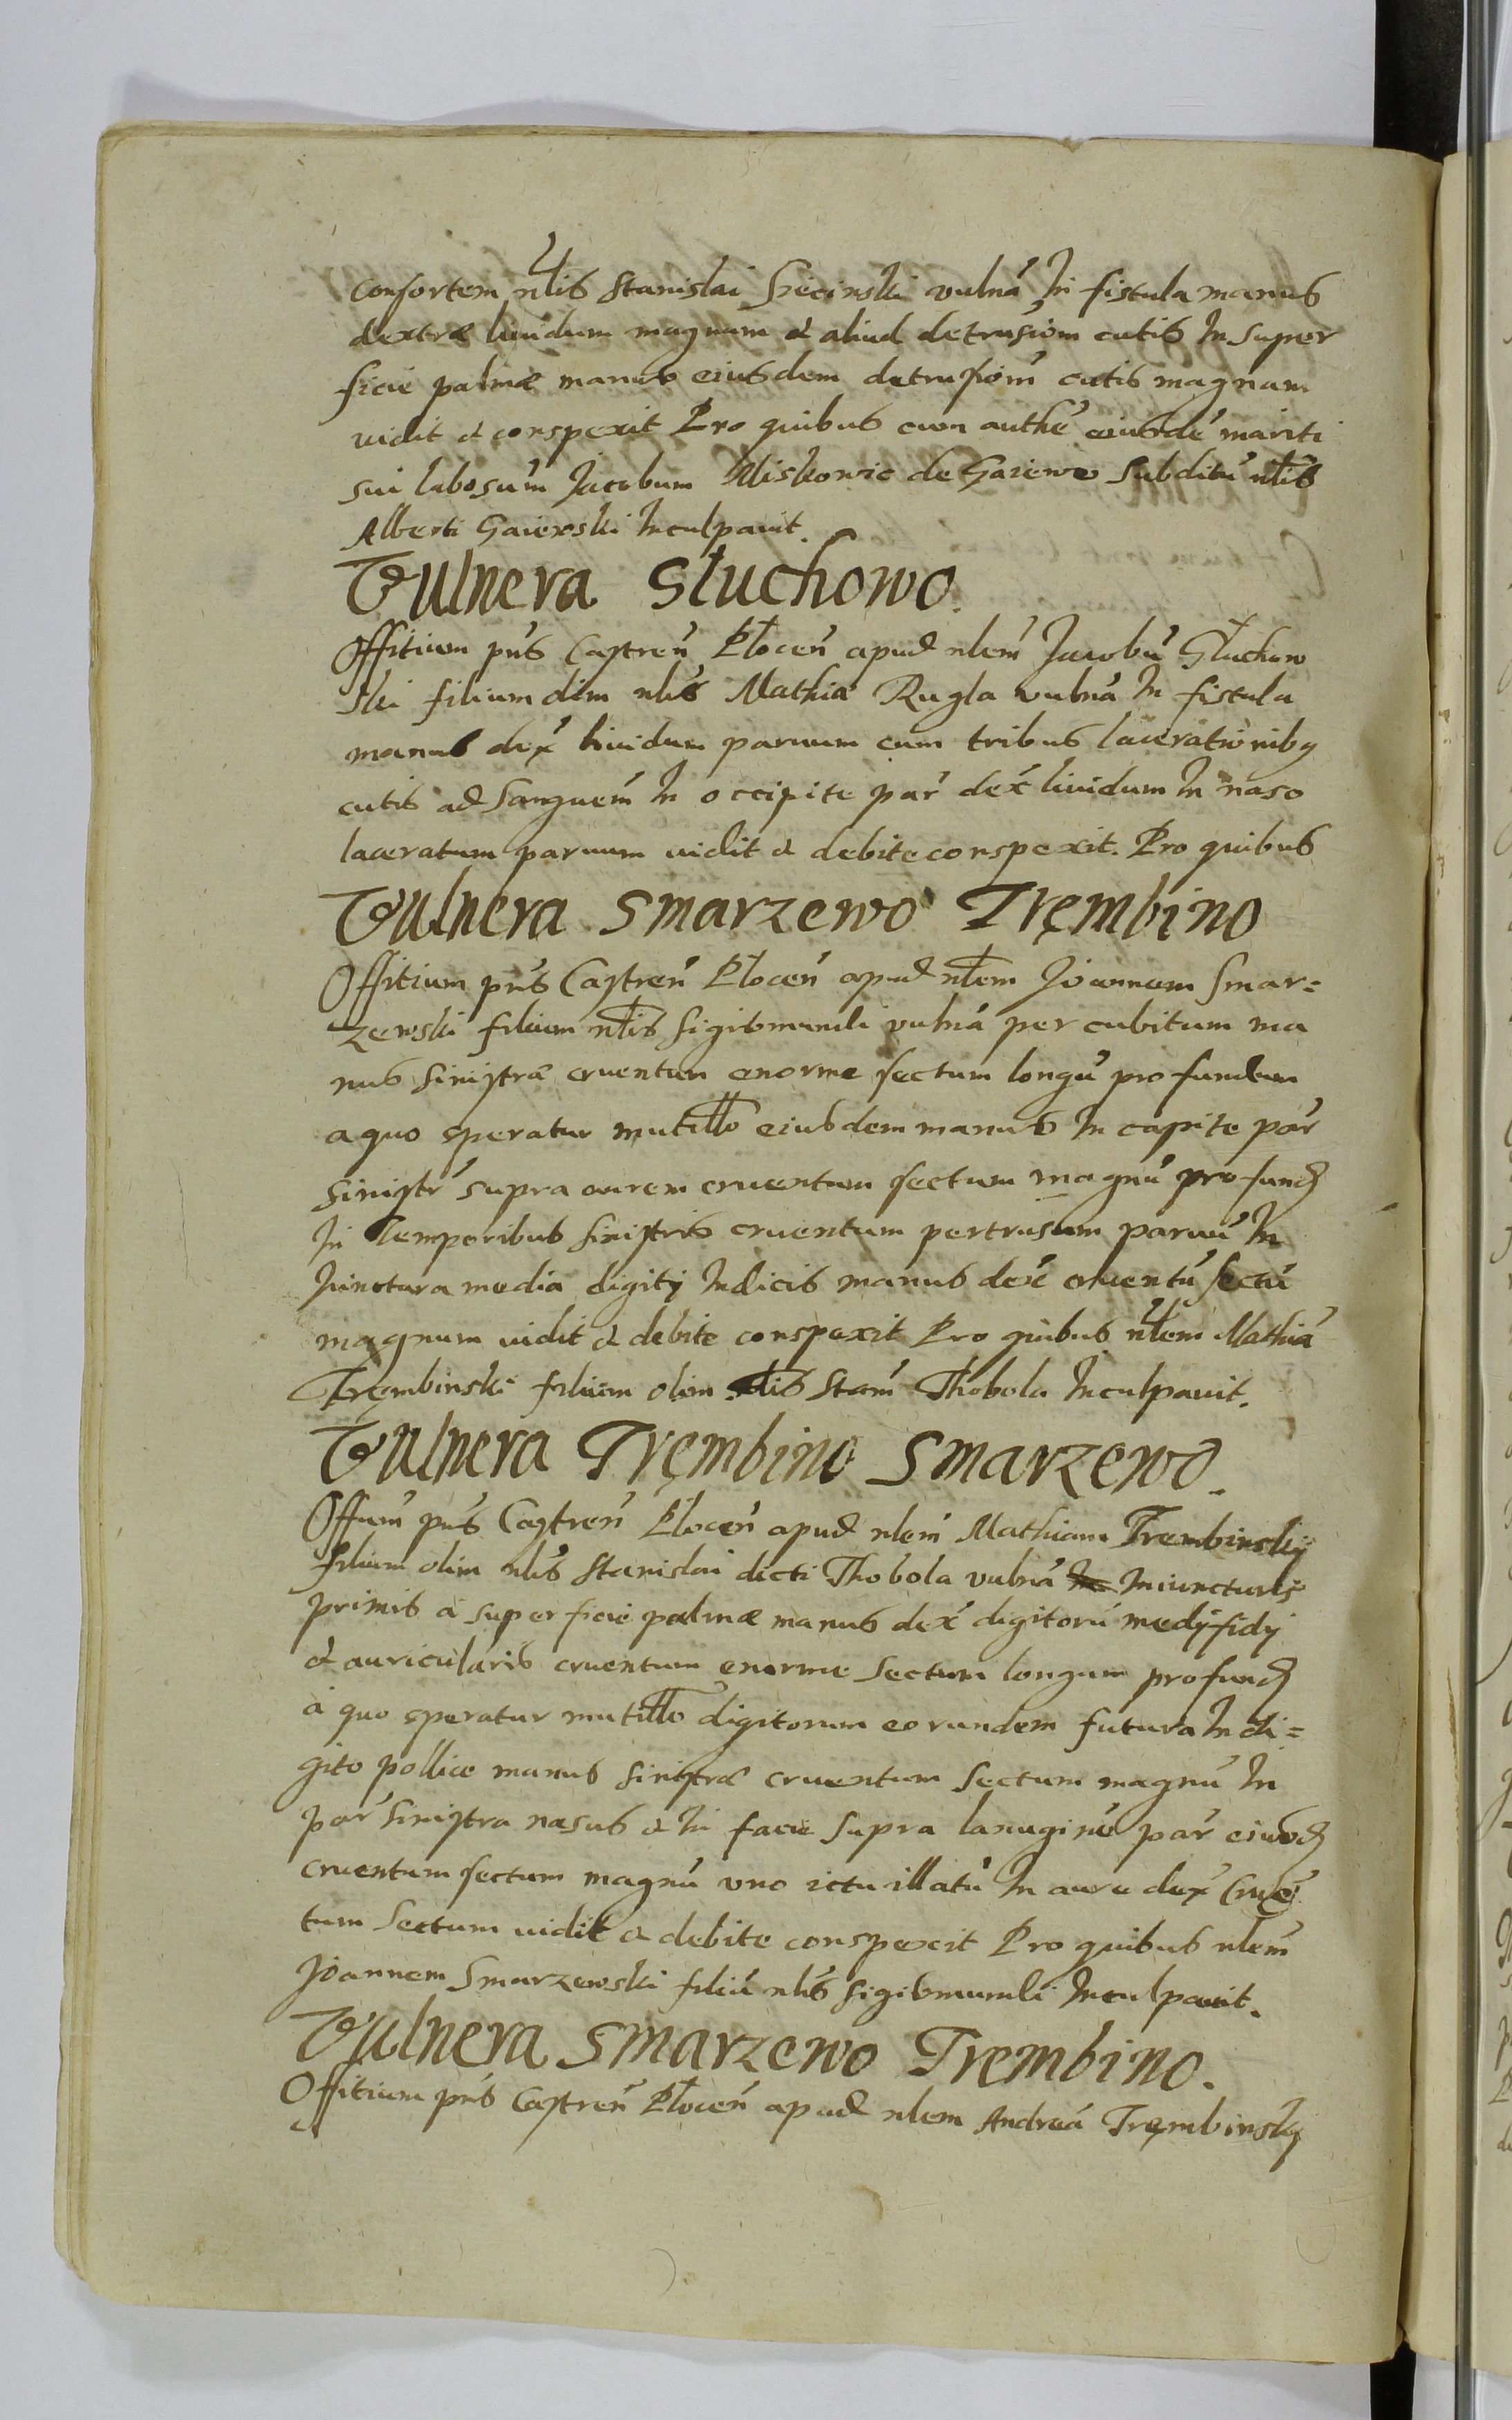 consortem nlis Stanislai Siecinski vulná In fistula manus
dextræ liuidum magnum & aliud detrusioni cutis In super
ficie palmæ manus eiusdem detrusioni cutis magnam
uidit & conspexit Pro quibus cum authe eiusdé mariti
sui labosum Jacobum Miskowic de Gaiewo Subditú nlis
Alberti Gaiewski Inculpauit.
Vulnera Słuchowo.
Offitium pñs Castreñ Płoceñ apud nlem Jacobú Słuchow
ski filium olim nlis Mathiæ Rugla vulná In fistula
manus dex liuidum paruum cum tribus lacerationibq
cutis ad Sanguem In occipite par dex liuidum In naso
laceratum paruum uidit & debite conspexit. Pro quibus
Vulnera Smarzewo Trębino
Offitium pñs Castreñ Płoceñ apud nlem Joannem Smar=
zewski filium nlis Sigismundi vulná per cubitum ma
nus sinistræ cruentum enorme sectum longú profundum
a quo speratur mutillo eiusdem manus In capite par
sinistr supra aurem cruentum sectum magnú profund
In Temporibus sinistris cruentum pertrusum paruú In
Iunctura media digity Indicis manus dex cruentú sectú
magnum uidit & debite conspexit Pro quibus nlem Mathiá
Tręmbinski filium olim nlis Stani Thobola Inculpauit.
Vulnera Tręmbino Smarzewo.
Offium pñs Castreñ Płoceñ apud nlem Mathiam Trembinskÿ
filium olim nlis Stanislai dicti Thobola vulná In Iniuncturis
primis a superficie palmæ manus dex digitorú medÿ fidÿ
& auricularis cruentum enorme sectum longum profund
a quo speratur mutillo digitorum eorundem futura In di=
gito pollice manus sinistræ cruentum sectum magnú In
par sinistra nasus & In facie supra lanuginé par eiusd
cruentum sectum magnú vno ictu illatú In aure dex Crué
tum Sectum uidit & debite conspexit Pro quibus nlem
Joannem Smarzewski filiú nlis Sigismundi Inculpauit.
Vulnera Smarzewo Trembino.
Offitium pñs Castreñ Płoceñ apud nlem Andreá Tręmbinsky